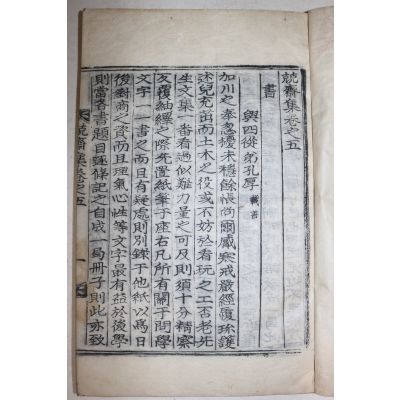 兢齋集卷之五
書
與四從弟孔厚 載春
加川之奉忽擾未穩餘悵尚爾感寒戒嚴經履珎護
述兒充茁而土木之役或不妨於看玩之工否老先
生文集一番看過似難力量之可及則須十分精察
反覆紬繹之際先置紙筆于座右凡所有關于問學
文字一一書之而且有疑處則別錄于他紙以爲日
後對商之資而且理氣心性等文字最有益於後學
則當各書題目逐條記之自成一局冊子則此亦致
兢齋集卷之五
一